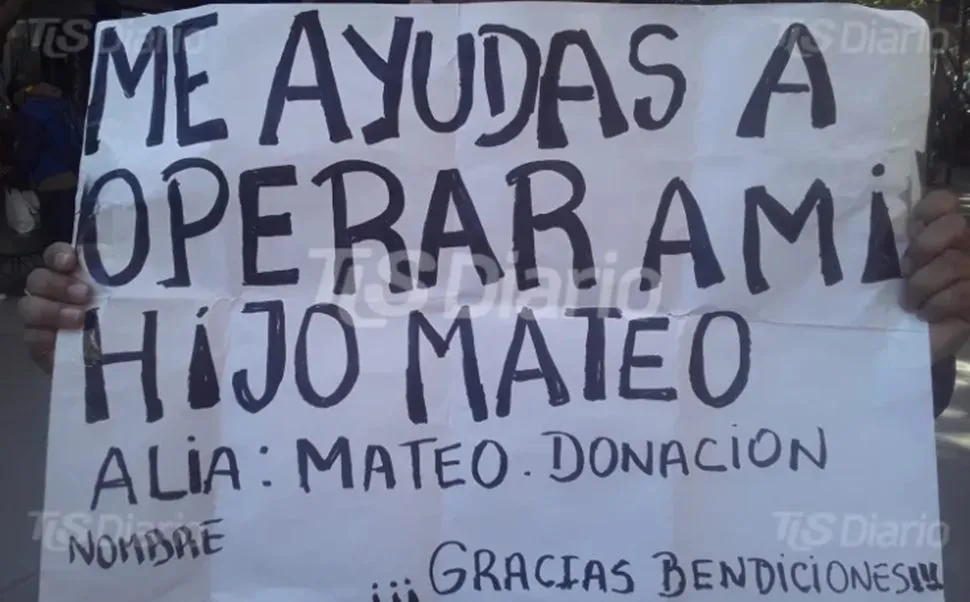 ME AYUDAS A
OPERAR A Mi
HiJO MATEO
ALiA: MATEO. DONACION
NOMBRE
¡¡¡ GRACIAS BENDICIONES!!!
TLS Diario
TLS Diario
TLS Diario
TLS Diario
TLS Diario